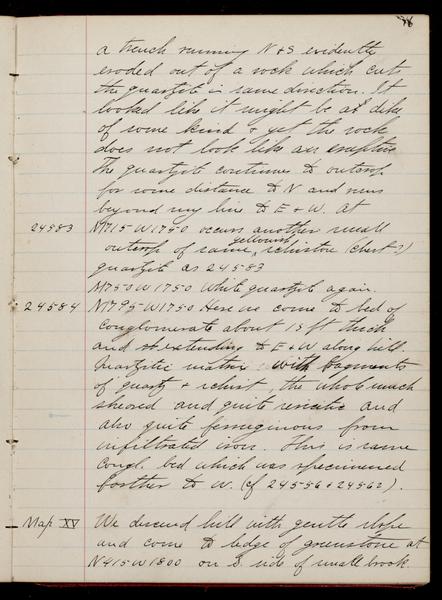 a trench running N & S evidently
eroded out of a rock which cuts
the quartzite in same direction. It
looked like it might be a dike
of some kind & yet the rock
does not look like an eruptive.
The quartzite continues to outcrop
for some distance to N and runs
beyond my line to E & W. At
24583 N715 W1750 occurs another small
yellowish
outcrop of same schistose (chert?)
quartzite as 24583
N750 W1750 White quartzite again.
24584 N795 W1750 Here we come to bed of
conglomerate about 15 ft thick
and extending to E & W along hill.
Quartzitic matrix with fragments
of quartz & schist, the whole much
sheared and quite sericitic and
also quite ferruginous from
infiltrated iron. This is same
congl. bed which was specimened
farther to W. (cf 24556 & 24562).
Map XV We descend hill with gentle slope
and come to ledge of greenstone at
N915 W1800 on S. side of small brook